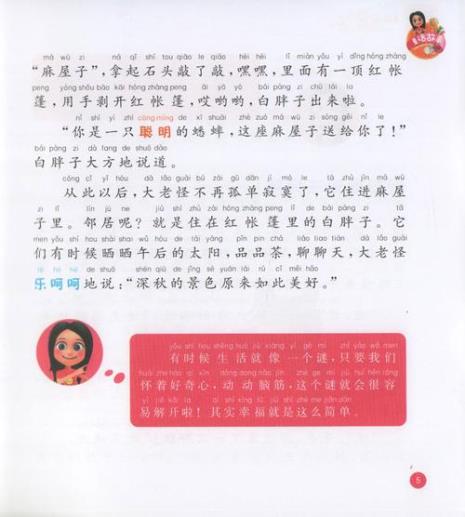 má wū zi ná qǐ shí tou qiāo le qiāo hēi hēi lǐ miàn yǒu yì dǐng hóng zhàng
“麻屋子”，拿起石头敲了敲，嘿嘿，里面有一顶红帐
peng yòng shǒu bāo kāi hóng zhàng peng āi yō yō bái pàng zi chū lái la
蓬，用手剥开红帐蓬，哎哟哟，白胖子出来啦。
nǐ shì yì zhī cōng míng de xī shuài zhè zuò má wū zi sòng gěi nǐ le
“你是一只聪明的蟋蟀，这座麻屋子送给你了！”
bái pàng zi dà fang de shuō dào
白胖子大方地说道。
cóng cǐ yǐ hòu dà lǎo guài bú zài gū dān jì mò le tā zhù jìn má wū
从此以后，大老怪不再孤单寂寞了，它住进麻屋
zi lǐ lín jū ne jiù shì zhù zài hóng zhàng peng lǐ de bái pàng zi tā
子里。邻居呢？就是住在红帐蓬里的白胖子。它
men yǒu shí hou shài shai wǔ hòu de tài yáng pǐn pin chá liáo liao tiān dà lǎo guài
们有时候晒晒午后的太阳，品品茶，聊聊天，大老怪
lè hē hē de shuō shēn qiū de jǐng sè yuán lái rú cǐ měi hǎo
乐呵呵地说：“深秋的景色原来如此美好。”
yǒu shí hou shēng huó jiù xiàng yí gè mí zhǐ yào wǒ men
有时候生活就像一个谜，只要我们
huái zhe hào qí xīn dòng dong nǎo jīn zhè ge mí jiù huì hěn róng
怀着好奇心，动动脑筋，这个谜就会很容
yì jiě kāi la qí shí xìng fú jiù shì zhè me jiǎn dān
易解开啦！其实幸福就是这么简单。
5